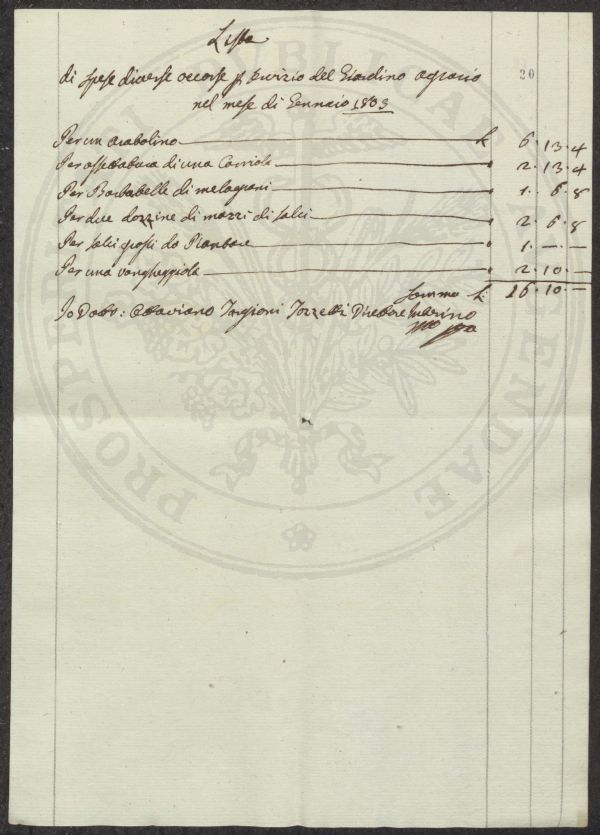 Lista
20
di spese diverse occorse p servizio del Giardino agrario
nel mese di Gennaio 1803
Per un arabolino £ 6. 13. 4
Per assettatura di una Carriola " 2. 13. 4
Per Barbatelle di melagrani " 1. 6. 8
Per due dozzine di mazzi di salci " 2. 6. 8
Per salci grossi da Piantare " 1. — . —
Per una vangheggiola " 2. 10. —
Somma £. 16. 10. —
Io Dott: Ottaviano Targioni Tozzetti Direttore Interino
PROSPERITATI PUBLICAE AUGENDAE